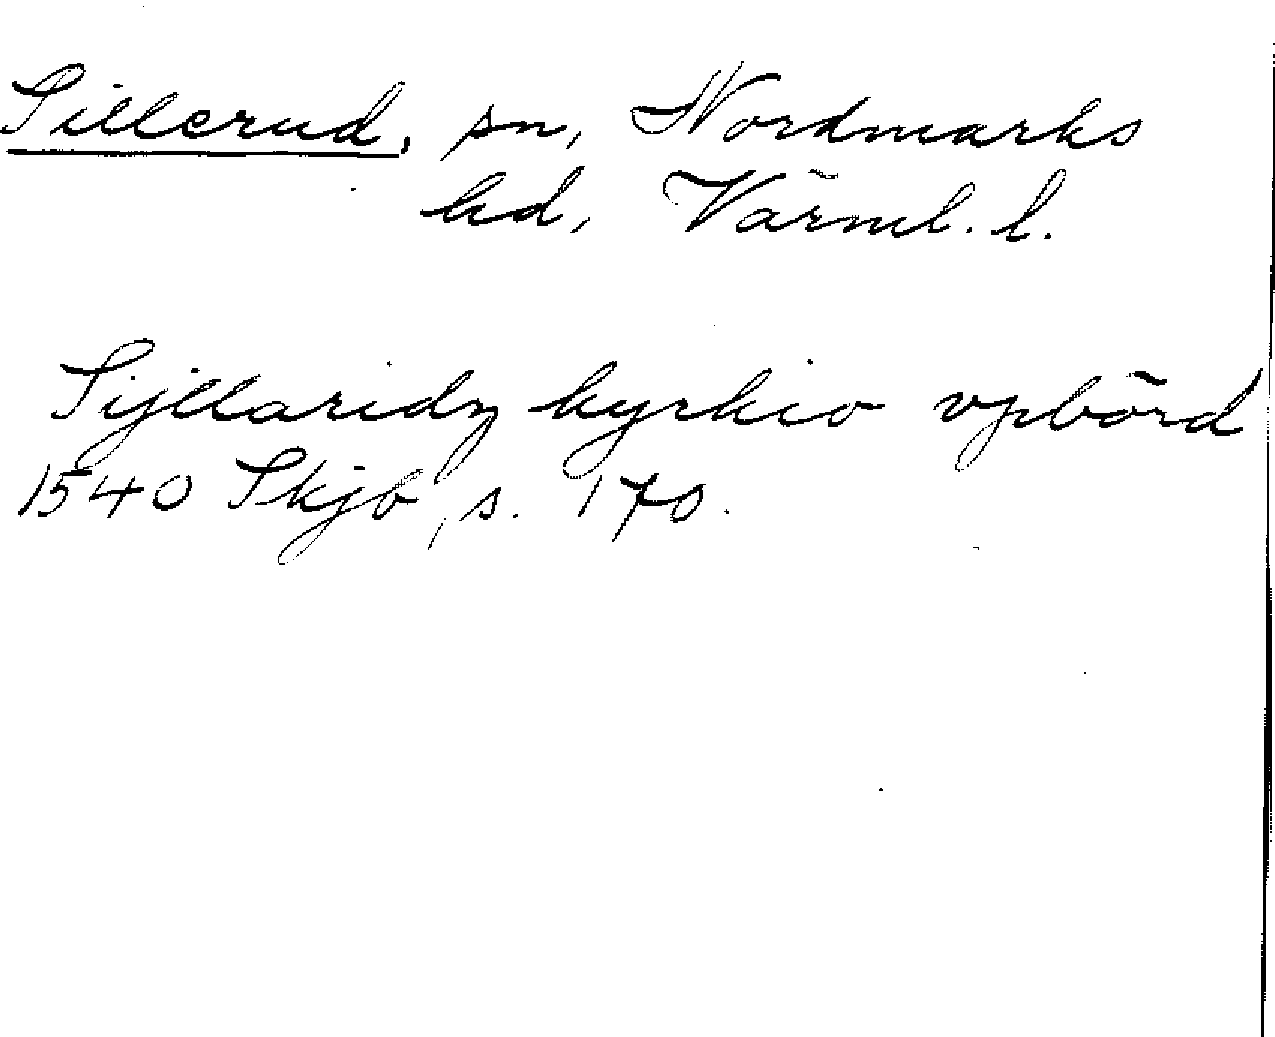 Sillerud, sn, Nordmarks
hd, Värml. l.
Sijllaridz kyrkio vpbörd
1540 Skjb, s. 170.